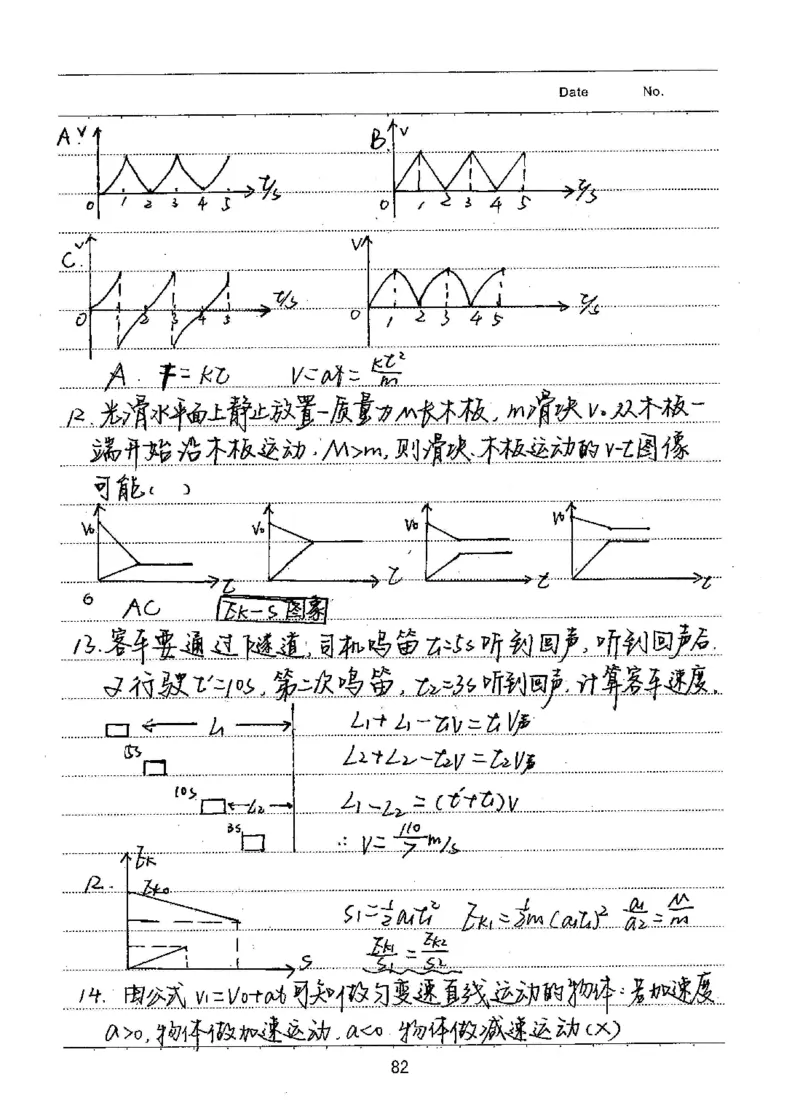 Date No.
A. v B. v
0 1 2 3 4 5 t/s 0 1 2 3 4 5 t/s
C. v v
0 2 3 4 5 t/s 0 1 2 3 4 5 t/s
A. F=kt v=at=kt²/m
12. 光滑水平面上静止放置一质量为M长木板,m滑块v₀从木板一
端开始沿木板运动,M>m,则滑块、木板运动的v-t图像
可能( )
v₀ v₀ v₀ v₀
t t t t
AC Ek-s图象
13. 客车要通过隧道,司机鸣笛t₁=5s听到回声,听到回声后,
又行驶t'=10s,第二次鸣笛,t₂=3s听到回声,计算客车速度。
L₁ L₁+L₁-t₁v=t₁v声
5s L₂+L₂-t₂v=t₂v声
10s L₂ L₁-L₂=(t'+t₁)v
3s ∴ v=110/7 m/s
Ek
12. Ek₀
s₁=½a₁t₁² Ek₁=½m(a₁t₁)² a₁/a₂=M/m
s Ek₁/s₁=Ek₂/s₂
14. 由公式v₁=v₀+at可知做匀变速直线运动的物体:若加速度
a>0,物体做加速运动,a<0 物体做减速运动(×)
82